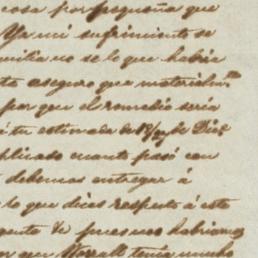 cosa por pequeña que
Ya mi sufrimiento se
milia no se lo que habria
to aseguro que materialmte
por que el remedio seria
á tu estimada de 18/ de Dice
plicado cuanto pasó con
debemos entregar á
lo que dices respecto á este
gente de pues nos habriamos
por que Worrall tenia mucho